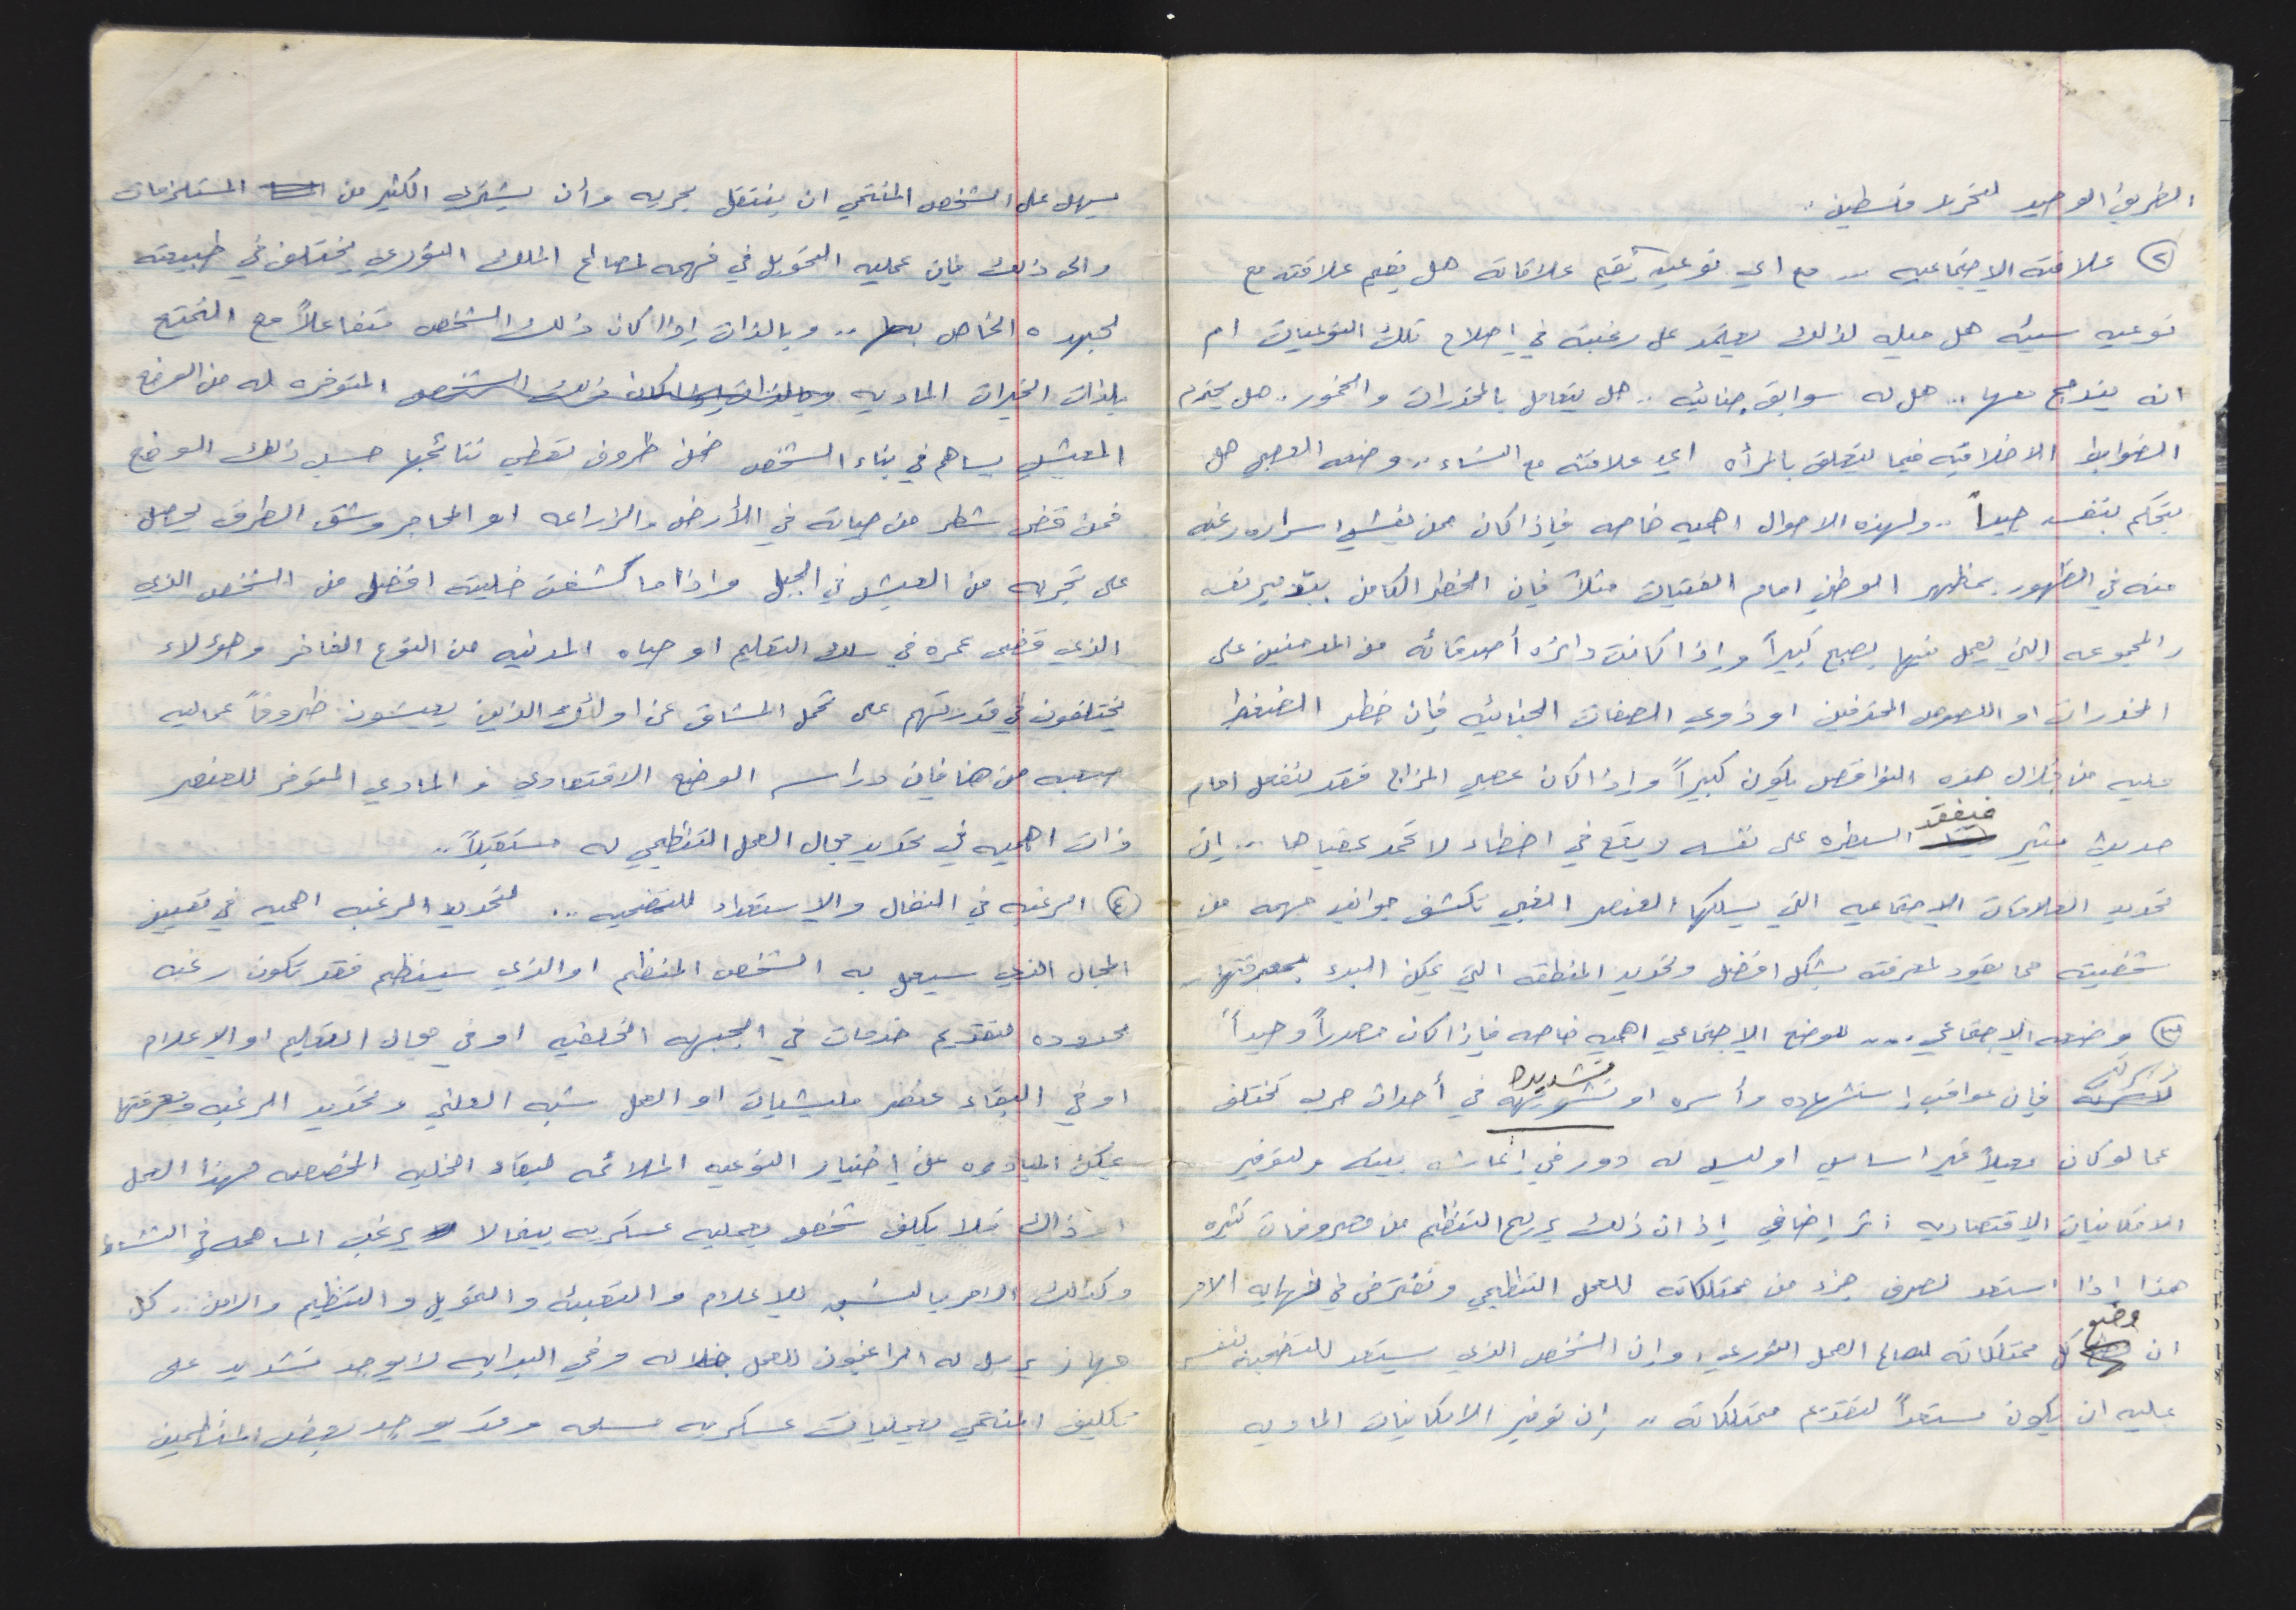 الطريق الوحيد لتحرير فلسطين.
٢ علاقته الاجتماعيه ... مع اي نوعيه يقيم علاقاته هل يقيم علاقته مع
نوعيه سيئه هل ميله لذلك يعتمد على رغبته في إصلاح تلك النوعيات ام
انه يندمج معها .. هل له سوابق جنائيه .. هل يتعامل بالمخدرات والخمور. هل يحترم
الضوابط الاخلاقيه فيما يتعلق بالمرأه اي علاقته مع النساء .. وضعه العصبي هل
يتحكم بنفسه جيداً .. ولهذه الاحوال اهميه خاصه فإذا كان ممن يفشي اسراره رغبه
منه في الظهور بمظهر الوطني امام الفتيات مثلاً فإن الخطر الكامن بتدمير نفسه
والمجموعه التي يعمل فيها يصبح كبيراً وإذا كانت دائره أصدقائه من المدمنين على
المخدرات او اللصوص المحترفين او ذوي الصفات الجنائيه فإن خطر الضغط
عليه من خلال هذه النواقص يكون كبيراً وإذا كان عصبي المزاج فقد ينفعل امام
حديث مثير فيفقد السيطره على نفسه ويقع في اخطاء لا تحمد عقباها ... إن
تحديد العلاقات الاجتماعيه التي يسلكها العنصر تكشف جوانب مهمه من
شخصيته مما يقود لمعرفته بشكل افضل وتحديد المنطقه التي يمكن البدء بمعرفتها..
٣ وضعه الاجتماعي .... للوضع الاجتماعي اهميه خاصه فإذا كان مصدراً وحيداً
لأسرته فإن عواقب إستشهاده وأسره او تشديده في أحداث حرب تختلف
عما لو كان معيلاً غير اساسي او ليس له دور في إعاشه بيته ولتوفير
الامكانيات الاقتصاديه اثر إضافي إذ ان ذلك يريح التنظيم من مصروفات كثيره
هذا إذا استعد لصرف جزء من ممتلكاته للعمل التنظيمي ونفترض في نهايه الامر
ان وضع كل ممتلكاته لصالح العمل الثوري، وإن الشخص الذي يستعد للتضحيه بنفسه
عليه ان يكون مستعداً لتقديم ممتلكاته .. إن توفير الامكانيات الماديه
يسهل على الشخص المنتمي ان ينتقل بحريه وأن يشتري الكثير من المستلزمات
والى ذلك فإن عمليه التحويل في فهمه لمصالح الملك الثوري يختلف في طبيعته
لجهده الخاص .. وبالذات إذا كان ذلك الشخص متفاعلاً مع التمتع
بلذات الخيرات الماديه وبالذات إذا كان ذلك الشخص المتوفره له من الوضع
المعيشي يساهم في بناء الشخص ضمن ظروف تعطي نتائجها حسب ذلك الوضع
فمن قضى شطر من حياته في الأرض والزراعه او المحاجر وشق الطرق يحصل
على تجربه من العيش في الجبل واذا ما كشفت خليته افضل من الشخص الذي
الذي قضى عمره في سلك التعليم او حياه المدنيه من النوع الفاخر وهؤلاء
يختلفون في قدرتهم على تحمل المشاق عن اولئك الذين يعيشون ظروفاً عماليه
صعبه من هنا فإن دراسه الوضع الاقتصادي و المادي المتوفر للعنصر
ذات اهميه في تحديد مجال العمل التنظيمي له مستقبلاً..
٤ الرغبه في النضال والاستعداد للتضحيه ... لتحديد الرغبه اهميه في تعيين
المجال الذي سيعمل به الشخص المنظم او الذي سينظم فقد تكون رغبه
محدوده لتقديم خدمات في الجبهه الخلفيه او في مجال التعليم او الاعلام
او في البقاء عنصر مليشيات او العمل شبه العلني وتحديد الرغبه ومعرفتها
يمكن المبادره على إختيار النوعيه الملائمه لبقاء الخليه المخصصه لهذا العمل
او ذاك فلا يكلف شخص بعمليه عسكريه بينما لا يرغب المساهمه في النشاط
وكذلك الامر بالنسبه للاعلام والتعبئه والتمويل والتنظيم والامن .. كل
جهاز يرسل له الراغبون للعمل خلاله وفي البدايه لا يوجد تشديد على
تكليف المنتمي بعمليات عسكريه مسلحه وقد يوجد بعض المنظمين